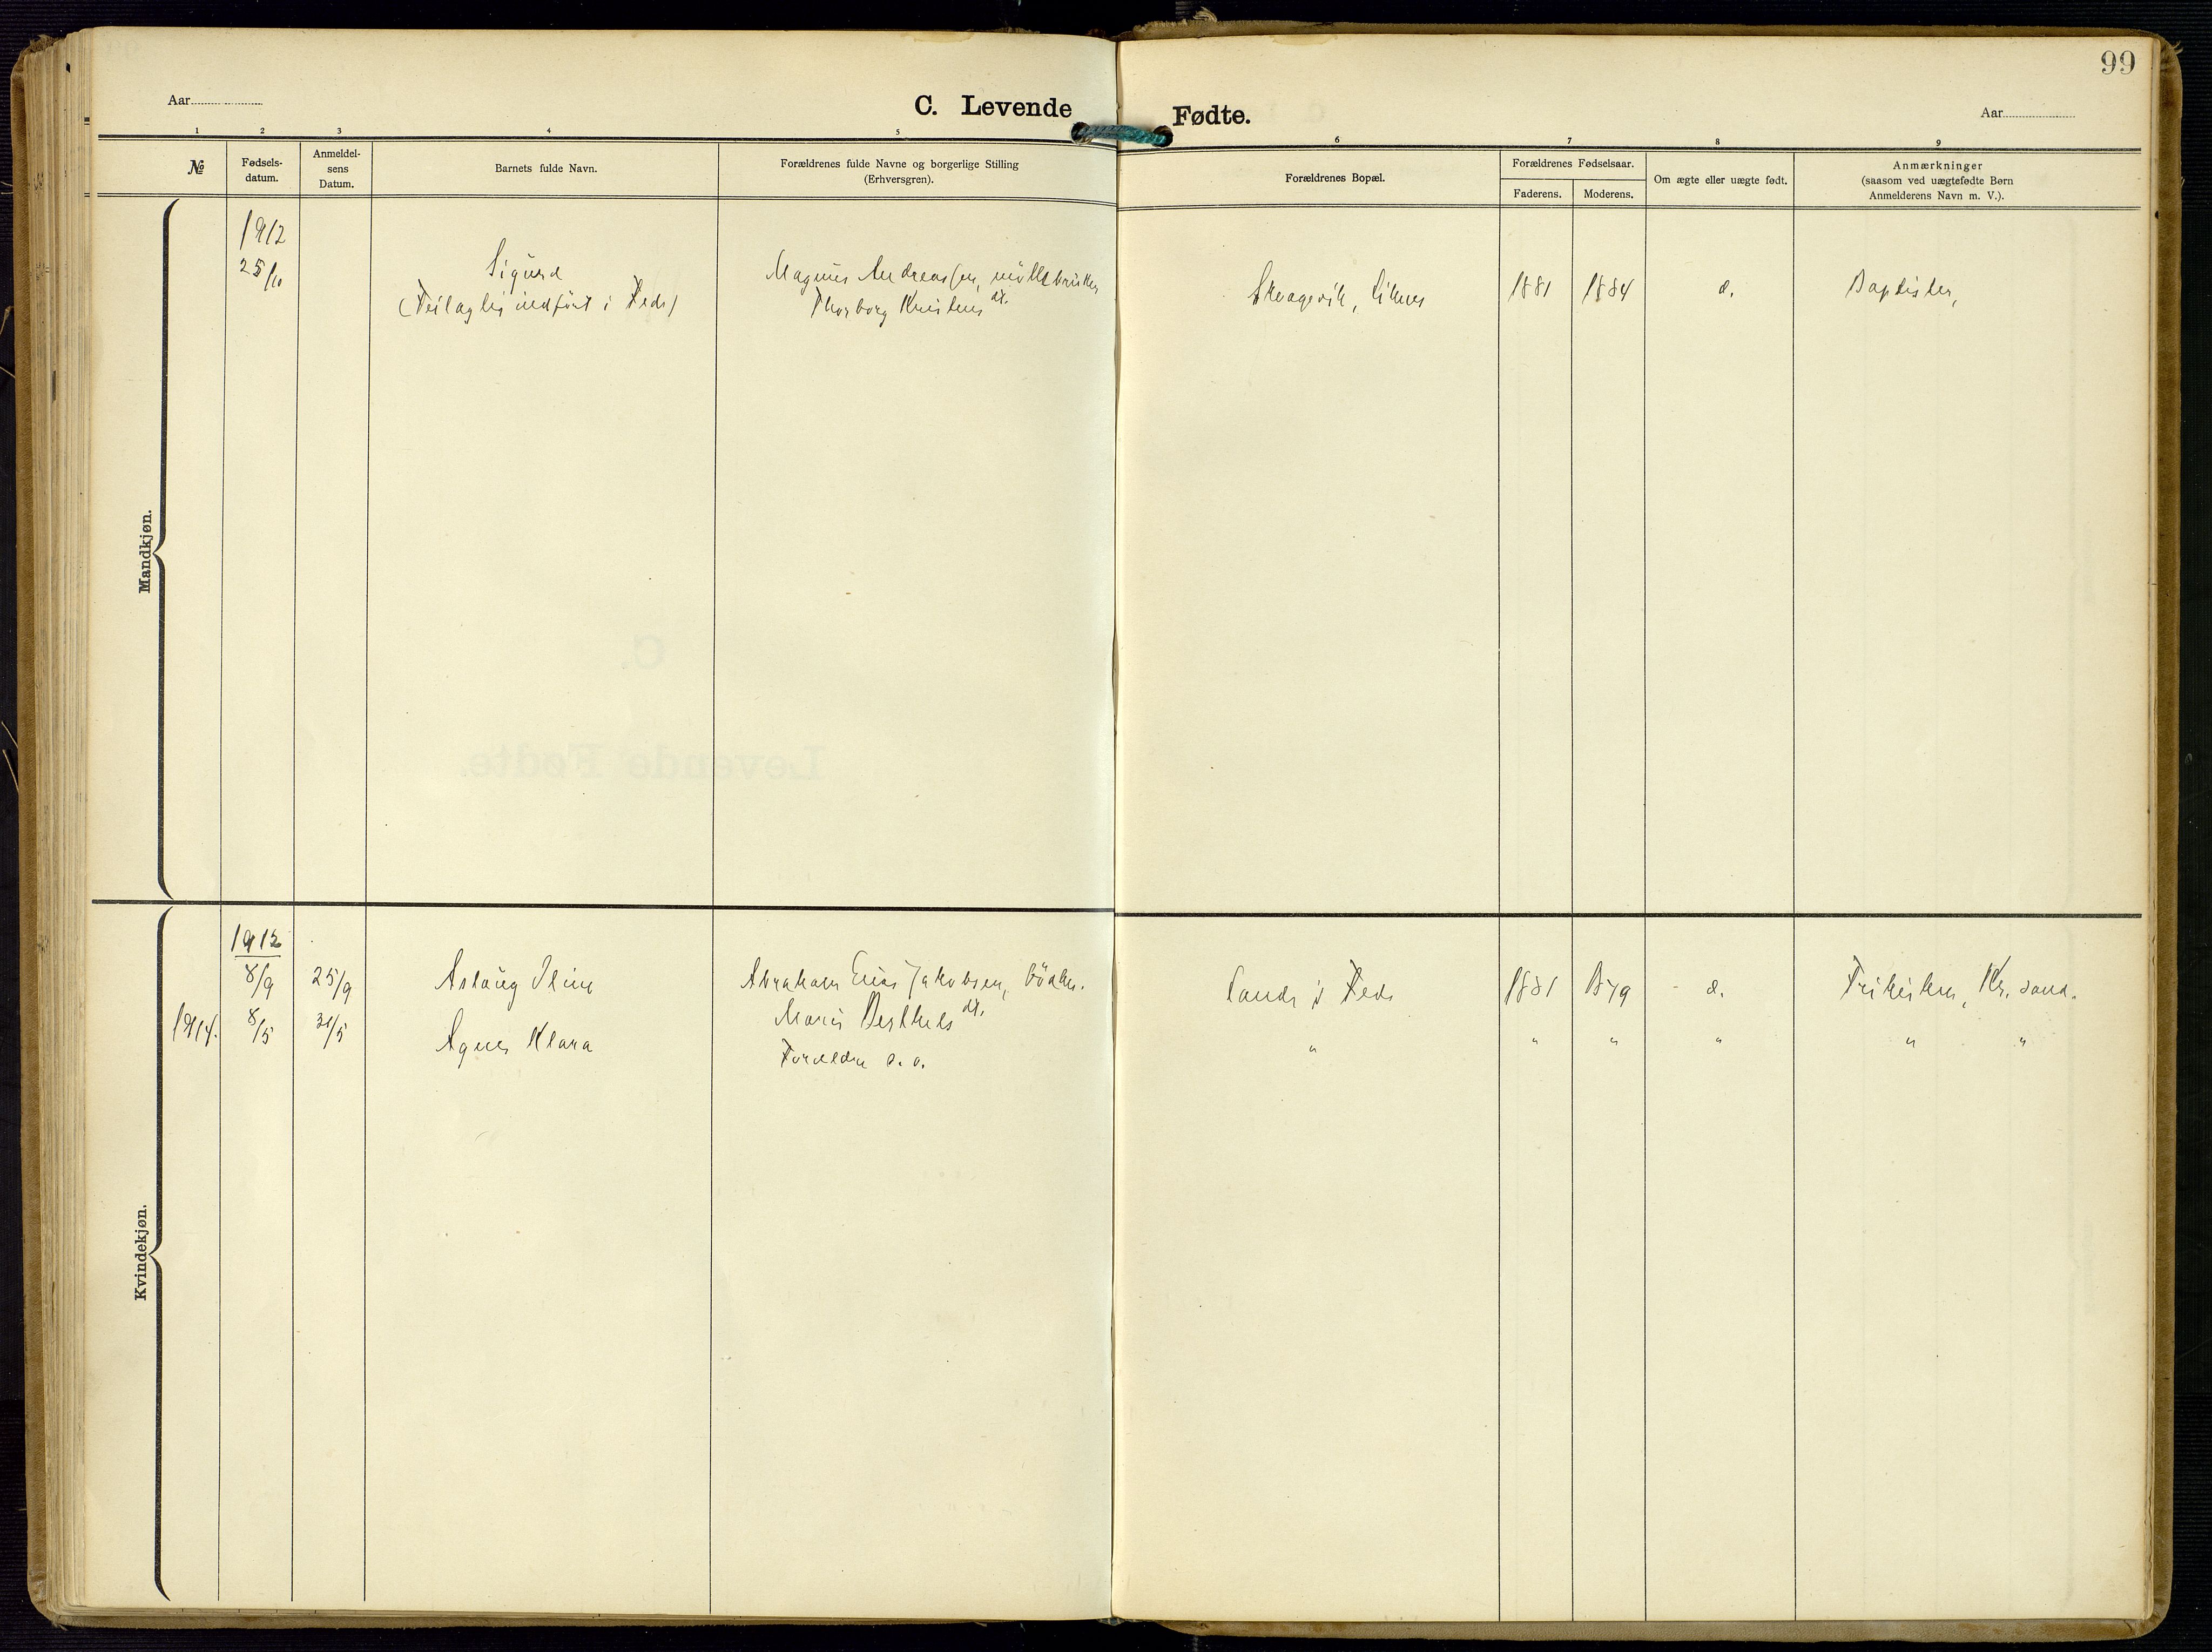 99
Aar
C. Levende Fødte.
Aar
1 2 3 4 5 6 7 8 9
№
Fødsels-
datum.
Anmeldel-
sens
Datum.
Barnets fulde Navn.
Forældrenes fulde Navne og borgerlige Stilling
(Erhversgren).
Forældrenes Bopæl.
Forældrenes Fødselsaar.
Faderens. Moderens.
Om ægte eller uægte født.
Anmærkninger
(saasom ved uægtefødte Børn
Anmelderens Navn m. V.).
Mandkjøn.
1912
25/10 Sigurd Magnus Andreassen, 1881 1884 æ. Baptister,
(Feilaglig indført i Feda) Thorborg dt.
Kvindekjøn.
1912
8/9 25/9 Aslaug Abraham Elias Jakobsen, bödker. Sande i Feda 1881 1879 æ. Frikirken, Kr.sand.
Marie Berthels dt.
1914. 8/5 31/5 Agnes Klara Foreldre s. o. " " " " " "